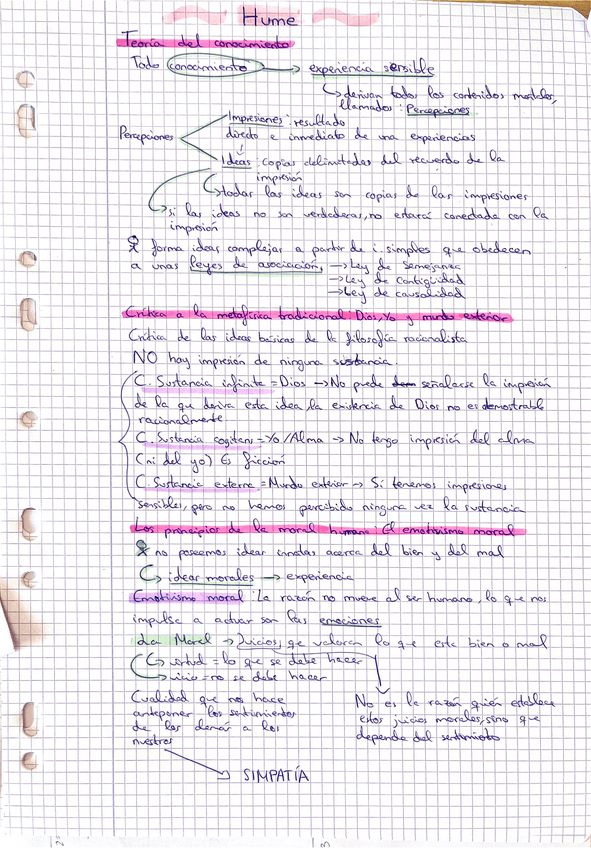 Hume
Teoría del conocimiento
Todo conocimiento → experiencia sensible
↳ derivan todos los contenidos mentales,
llamados: Percepciones.
Impresiones: resultado
Percepciones directo e inmediato de una experiencias
Ideas: copias delimitadas del recuerdo de la
impresión
↳ todas las ideas son copias de las impresiones
↳ si las ideas no son verdaderas, no estará conectada con la
impresión
forma ideas complejas a partir de i. simples que obedecen
a unas leyes de asociación, → Ley de semejanza
→ Ley de contigüidad
→ Ley de causalidad
Crítica a la metafísica tradicional: Dios, Yo y mundo exterior
Crítica de las ideas básicas de la filosofía racionalista
NO hay impresión de ninguna sustancia.
C. Sustancia infinita = Dios → No puede señalarse la impresión
de la que deriva esta idea, la existencia de Dios no es demostrable
racionalmente
C. Sustancia cogitans = Yo/Alma → No tengo impresión del alma
(ni del yo) Es ficción
C. Sustancia externa = Mundo exterior → Si tenemos impresiones
sensibles, pero no hemos percibido ninguna vez la sustancia
Los principios de la moral humana: El emotivismo moral
no poseemos ideas innatas acerca del bien y del mal
↳ ideas morales → experiencia
Emotivismo moral: La razón no mueve al ser humano, lo que nos
impulse a actuar son las emociones
La Moral → Juicios, qe valoran lo que esta bien o mal
↳ virtud = lo que se debe hacer
↳ vicio = no se debe hacer
Cualidad que nos hace
anteponer los sentimientos
de los demás a los
nuestros
No es la razón quién establece
estos juicios morales, sino que
depende del sentimiento
→ SIMPATÍA